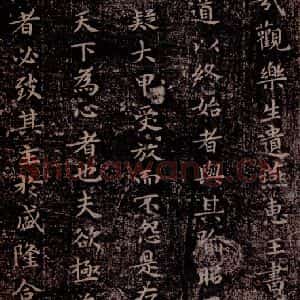 觀樂生遺燕惠王書
道以終始者與其喻昭
疑大甲受放而不怨是存
天下為心者也夫欲極
者必致其主於盛隆合
Shufawang.CN